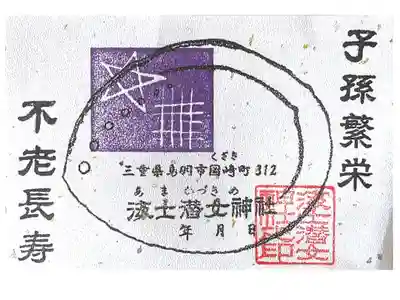 子孫繁栄
くざき
三重県鳥羽市国崎町312
あま かづきめ
海士潜女神社
年 月 日
海士潜女
神社之印
不老長寿